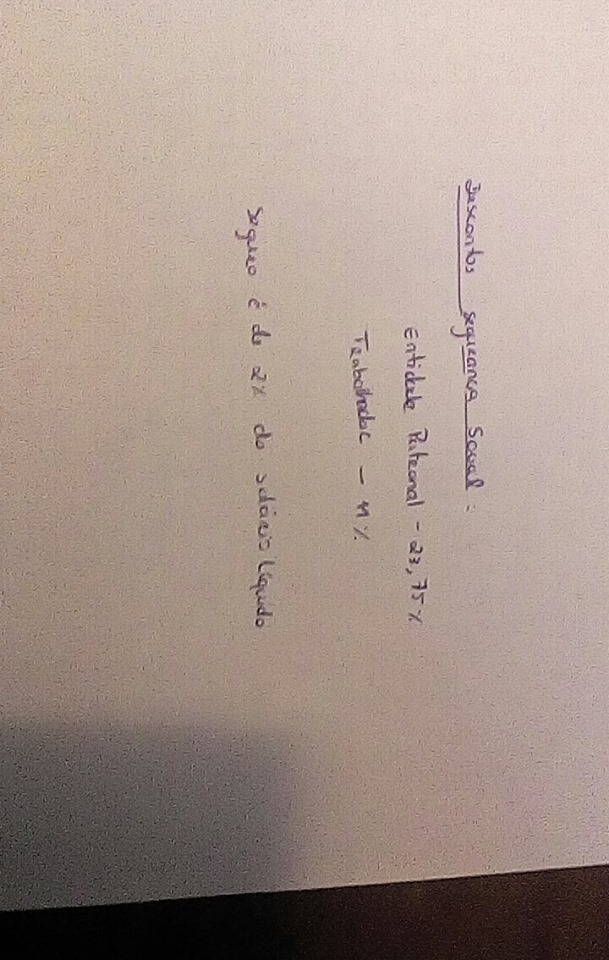 Descontos segurança Social:
Entidade Patronal - 23,75%
Trabalhador - 11%
Seguro é de 2% do salário líquido